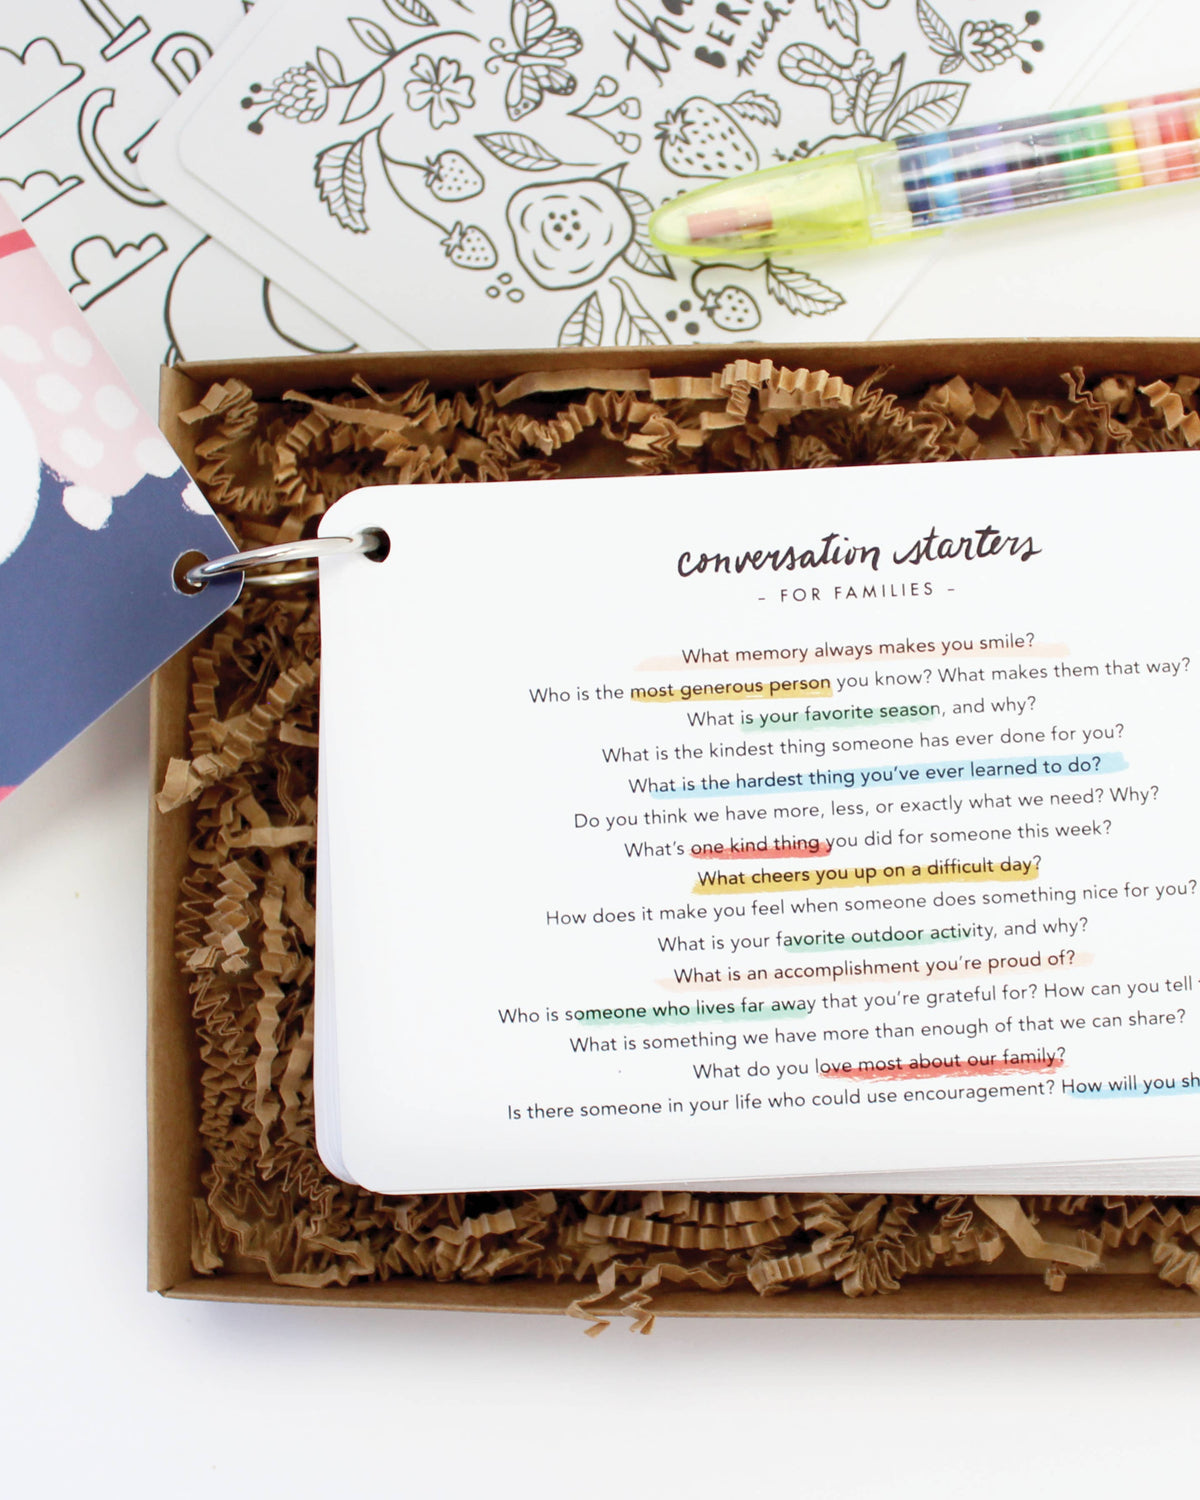 BERRY
much
conversation starters
- FOR FAMILIES -
What memory always makes you smile?
Who is the most generous person you know? What makes them that way?
What is your favorite season, and why?
What is the kindest thing someone has ever done for you?
What is the hardest thing you've ever learned to do?
Do you think we have more, less, or exactly what we need? Why?
What's one kind thing you did for someone this week?
What cheers you up on a difficult day?
How does it make you feel when someone does something nice for you?
What is your favorite outdoor activity, and why?
What is an accomplishment you're proud of?
Who is someone who lives far away that you're grateful for? How can you tell
What is something we have more than enough of that we can share?
What do you love most about our family?
Is there someone in your life who could use encouragement? How will you sh